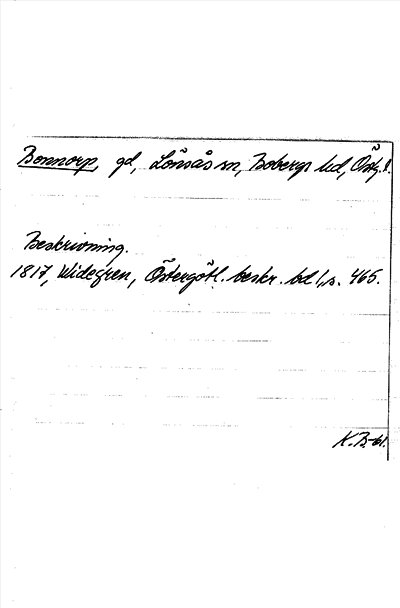 Bonnorp, gd, Lönsås sn, Bobergs hd, Östg. l.
Beskrivning.
1817, Widegren, Östergötl. beskr. bd 1, s. 465.
K.B-61.